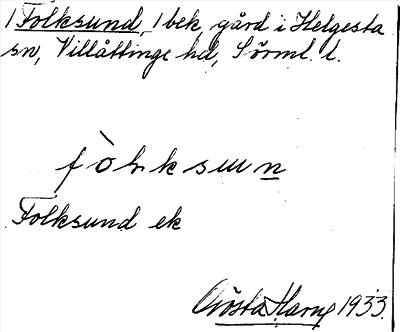 1 Folksund, 1 bek, gård i Helgesta
sn, Villåttinge hd, Sörml. l.
Folksund ek
Gösta Harng 1933.